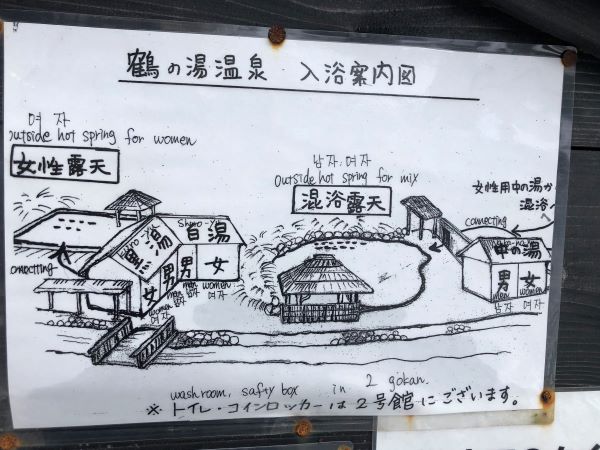 鶴の湯温泉 入浴案内図
여자
outside hot spring for women
女性露天
남자, 여자
Outside hot spring for mix
混浴露天
女性用中の湯か
混浴へ
connecting
onnecting
Kuro
黒湯
Shiro
白湯
中の湯
女 男 男 女
women
여자
men
남자
men
남자
women
여자
男 女
men women
남자 여자
washroom, safty box in 2 gōkan.
※ トイレ・コインロッカーは2号館にございます。